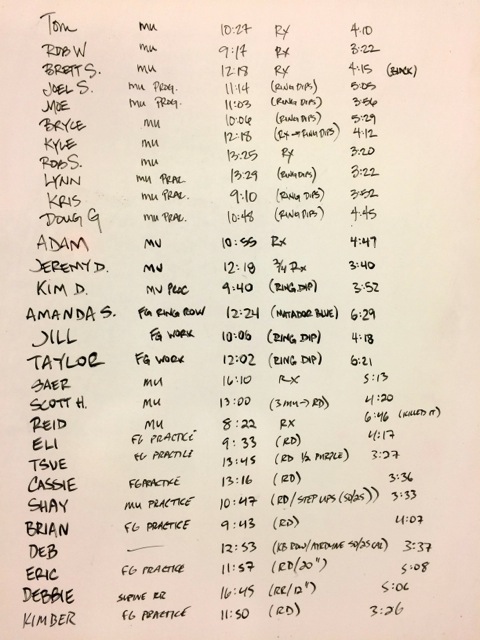 Tom MU 10:27 RX 4:10
ROB W MU 9:17 RX 3:22
BRETT S. MU 12:18 RX 4:15 (BLACK)
JOEL S. MU PROG. 11:14 (RING DIPS) 5:05
MOE MU PROG. 11:03 (RING DIPS) 3:56
BRYCE MU 10:06 (RING DIPS) 5:29
KYLE MU 12:18 (RX → RING DIPS) 4:12
ROB S. MU 13:25 RX 3:20
LYNN MU PRAC. 13:29 (RING DIPS) 3:22
KRIS MU PRAC. 9:10 (RING DIPS) 3:52
DOUG G MU PRAC. 10:48 (RING DIPS) 4:45
ADAM MU 10:55 RX 4:47
JEREMY D. MU 12:18 3/4 RX 3:40
KIM D. MU PROC 9:40 (RING DIP) 3:52
AMANDA S. FG RING ROW 12:24 (MATADOR BLUE) 6:29
JILL FG WORK 10:06 (RING DIP) 4:18
TAYLOR FG WORK 12:02 (RING DIP) 6:21
BAER MU 16:10 RX 5:13
SCOTT H. MU 13:00 (3 MU → RD) 4:20
REID MU 8:22 RX 6:46 (KILLED IT)
ELI FG PRACTICE 9:33 (RD) 4:17
TSUE FG PRACTICE 13:45 (RD 1/2 PURPLE) 3:27
CASSIE FG PRACTICE 13:16 (RD) 3:36
SHAY MU PRACTICE 10:47 (RD/STEP UPS (50/25)) 3:33
BRIAN FG PRACTICE 9:43 (RD) 4:07
DEB — 12:53 (KB ROW/AIRDYNE 50/25 CAL) 3:37
ERIC FG PRACTICE 11:57 (RD/20") 5:08
DEBBIE SUPINE RR 16:45 (RR/12") 5:06
KIMBER FG PRACTICE 11:50 (RD) 3:26